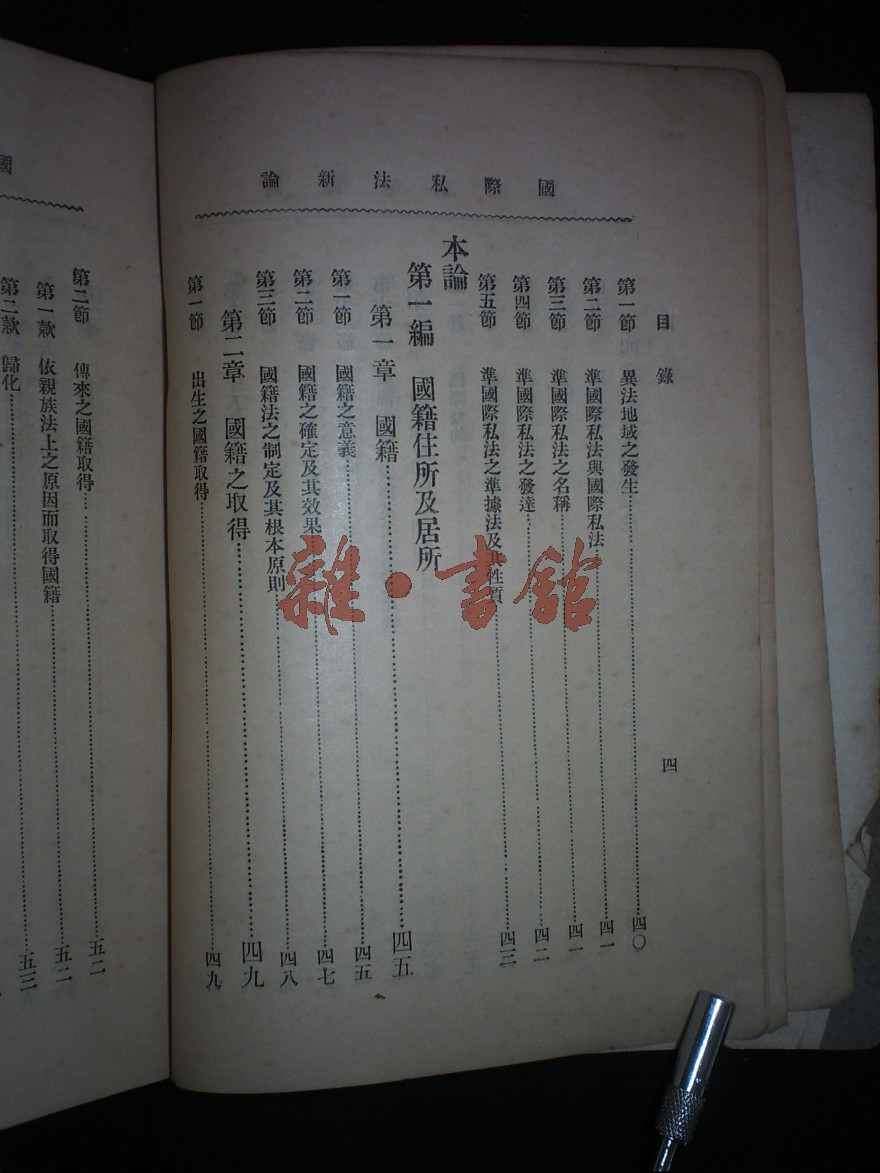 國際私法新論
目錄
四
第一節 異法地域之發生……四〇
第二節 準國際私法與國際私法……四一
第三節 準國際私法之名稱……四一
第四節 準國際私法之發達……四二
第五節 準國際私法之準據法及其性質……四三
本論
第一編 國籍住所及居所
第一章 國籍……四五
第一節 國籍之意義……四五
第二節 國籍之確定及其效果……四七
第三節 國籍法之制定及其根本原則……四八
第二章 國籍之取得……四九
第一節 出生之國籍取得……四九
國
第二節 傳來之國籍取得……五二
第一款 依親族法上之原因而取得國籍……五二
第二款 歸化……五三
雜·書館